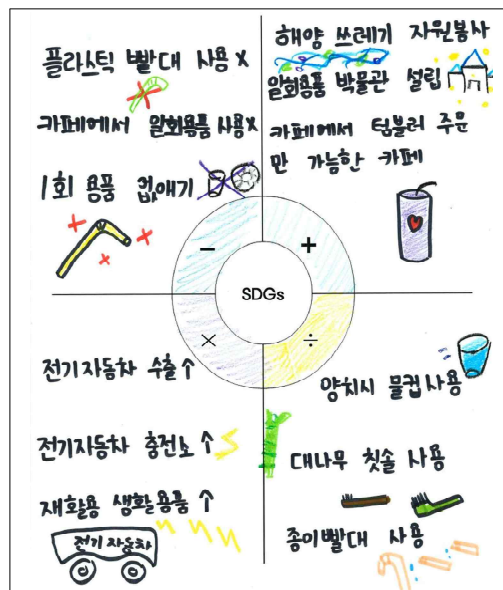 플라스틱 빨대 사용 x
카페에서 일회용품 사용x
1회 용품 없애기
해양 쓰레기 자원봉사
일회용품 박물관 설립
카페에서 텀블러 주문
만 가능한 카페
-
+
SDGs
×
÷
전기자동차 수출↑
전기자동차 충전소 ↑
재활용 생활용품 ↑
전기자동차
양치시 물컵사용
대나무 칫솔 사용
종이빨대 사용